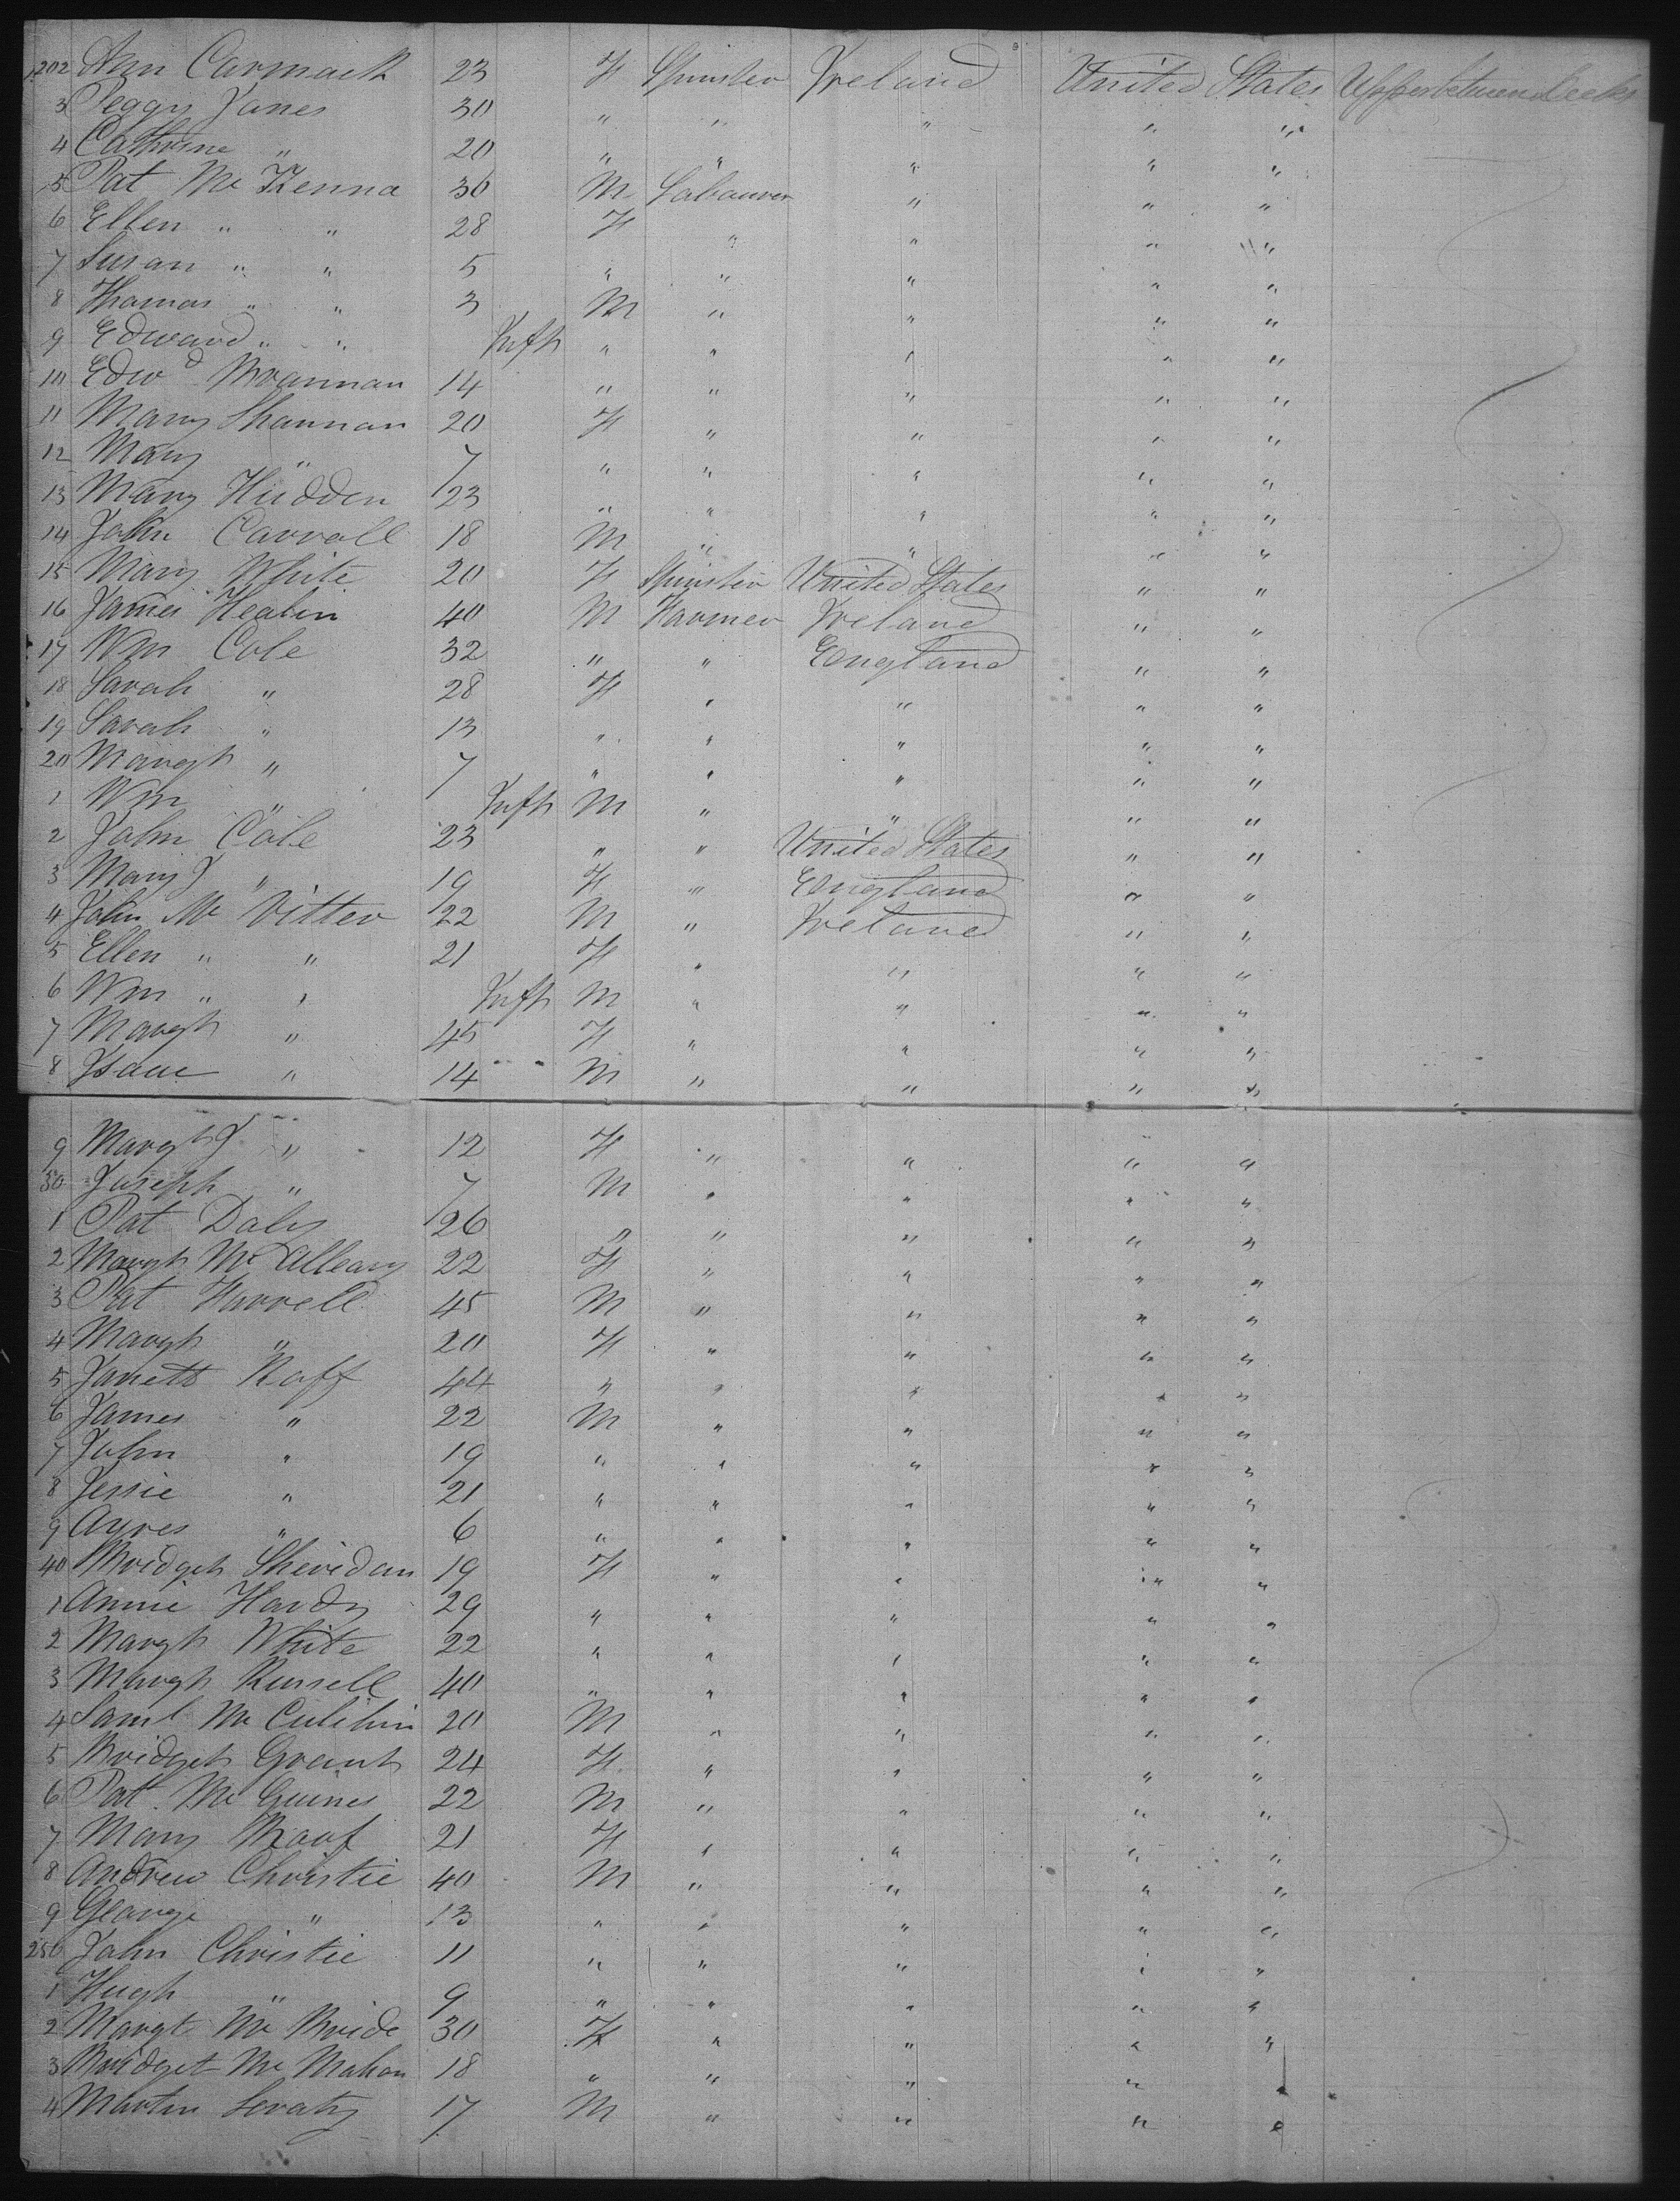 202 Ann Carmack 23 F Spinster Ireland United States Upper between decks
3 Peggy Janes 30 " " " " "
4 Cathrine " 20 " " " " "
5 Pat Mc Kenna 30 M Labourer " " "
6 Ellen " " 28 F " " " "
7 Susan " " 5 " " " " "
8 Thomas " " 3 M " " " "
9 Edward " " Inft " " " " "
10 Edwd Brannan 14 " " " " "
11 Mary Shannan 20 F " " " "
12 Mary " 7 " " " " "
13 Mary Hudden 23 " " " " "
14 John Carroll 18 M " " " "
15 Mary White 20 F Spinster United States " "
16 James Heabin 40 M Farmer Ireland " "
17 Wm Cole 32 " " England " "
18 Sarah " 28 F " " " "
19 Sarah " 13 " " " " "
20 Margt " 7 " " " " "
1 Wm " Inft M " " " "
2 John Cole 23 " " United States " "
3 Mary J " 19 F " England " "
4 John Mc Vitter 22 M " Ireland " "
5 Ellen " " 21 F " " " "
6 Wm " " Inft M " " " "
7 Margt " 45 F " " " "
8 Isaac " 14 M " " " "
9 Margt J " 12 F " " " "
30 Joseph " 7 M " " " "
1 Pat Daly 26 " " " " "
2 Margt Mc Alleary 22 F " " " "
3 Pat Farrell 45 M " " " "
4 Margt " 20 F " " " "
5 Janett Raff 44 " " " " "
6 James " 22 M " " " "
7 John " 19 " " " " "
8 Jessie " 21 " " " " "
9 Ayres " 6 " " " " "
40 Bridget Sheridan 19 F " " " "
1 Annie Hardy 29 " " " " "
2 Margt White 22 " " " " "
3 Margt Russell 40 " " " " "
4 Saml Mc Culihin 20 M " " " "
5 Bridget Grant 24 F " " " "
6 Pat Mc Guines 22 M " " " "
7 Mary Braof 21 F " " " "
8 Andrew Christie 40 M " " " "
9 George " 13 " " " " "
250 John Christie 11 " " " " "
1 Hugh " 9 " " " " "
2 Margt Mc Bride 30 F " " " "
3 Bridget Mc Mahon 18 " " " " "
4 Martin 17 M " " " "